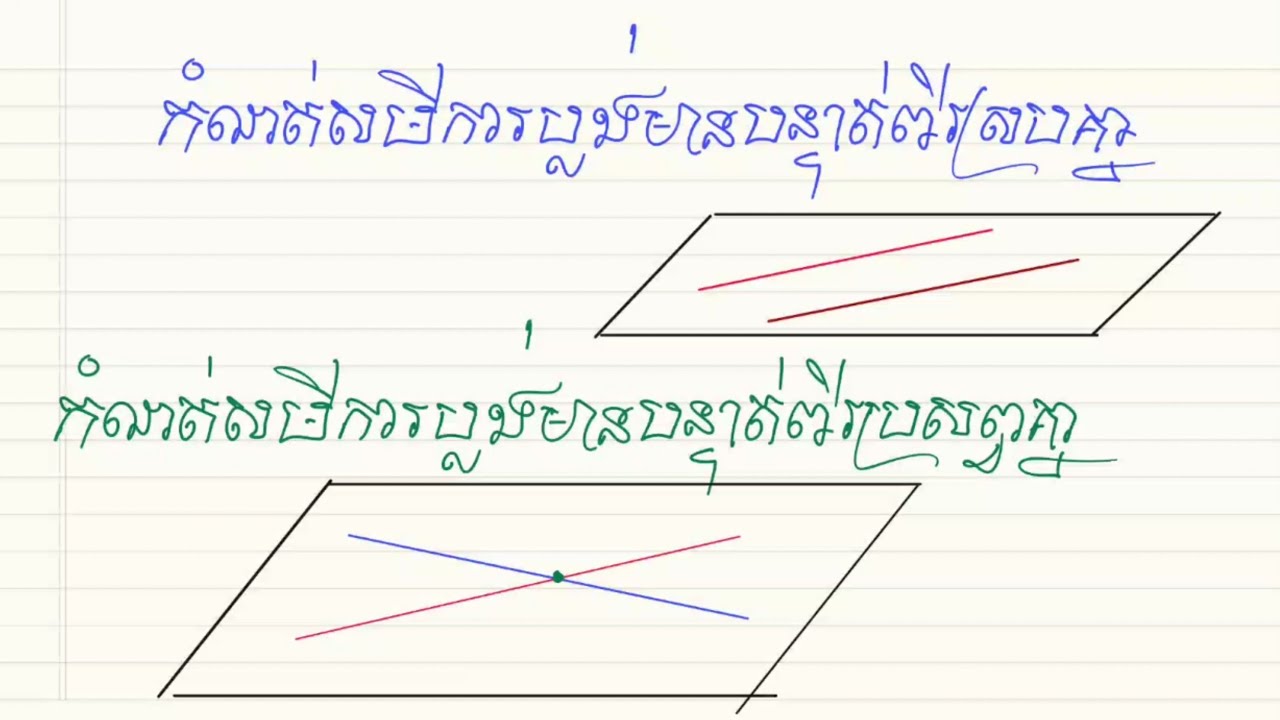 កំណត់សមីការប្លង់មានបន្ទាត់ពីរស្របគ្នា
កំណត់សមីការប្លង់មានបន្ទាត់ពីរប្រសព្វគ្នា